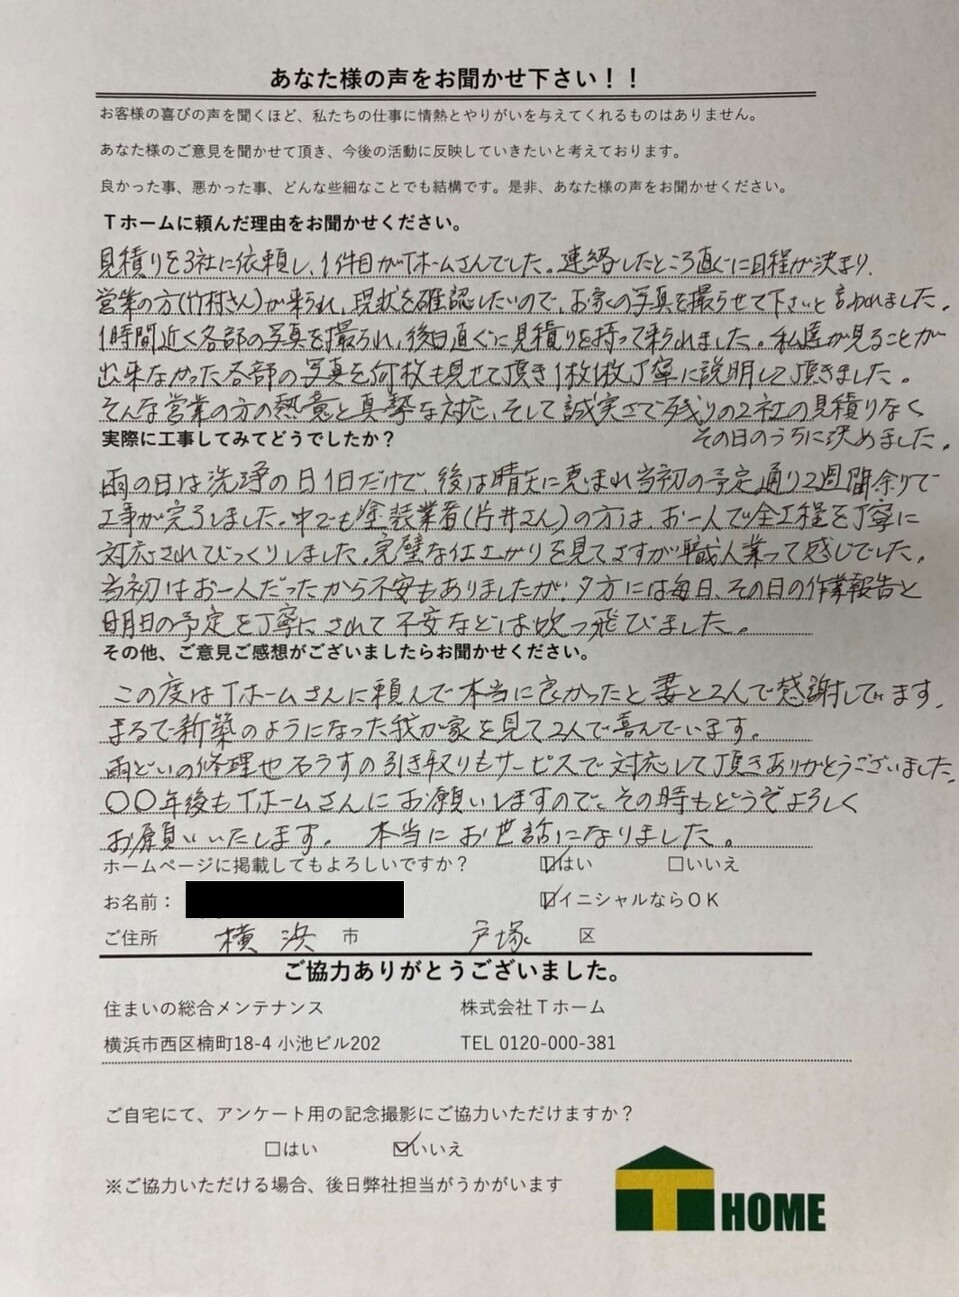 あなた様の声をお聞かせ下さい！！
お客様の喜びの声を聞くほど、私たちの仕事に情熱とやりがいを与えてくれるものはありません。
あなた様のご意見を聞かせて頂き、今後の活動に反映していきたいと考えております。
良かった事、悪かった事、どんな些細なことでも結構です。是非、あなた様の声をお聞かせください。
Ｔホームに頼んだ理由をお聞かせください。
見積りを3社に依頼し、1件目がTホームさんでした。連絡したところ直ぐに日程が決まり、
営業の方(竹村さん)が来られ、現状を確認したいので、お家の写真を撮らせて下さいと言われました。
1時間近く各部の写真を撮られ、後日直ぐに見積りを持って来られました。私達が見ることが
出来なかった各部の写真を何枚も見せて頂き1枚1枚丁寧に説明して頂きました。
そんな営業の方の熱意と真摯な対応、そして誠実さで残りの2社の見積りなく
その日のうちに決めました。
実際に工事してみてどうでしたか？
雨の日は洗浄の日1日だけで、後は晴天に恵まれ当初の予定通り2週間余りで
工事が完了しました。中でも塗装業者(片井さん)の方は、お一人で全工程を丁寧に
対応されてびっくりしました。完璧な仕上がりを見てさすが職人業って感じでした。
当初はお一人だったから不安もありましたが、夕方には毎日、その日の作業報告と
明日の予定を丁寧にされて不安などは吹っ飛びました。
その他、ご意見ご感想がございましたらお聞かせください。
この度はTホームさんに頼んで本当に良かったと妻と2人で感謝してます。
まるで新築のようになった我が家を見て2人で喜んでいます。
雨どいの修理や石うすの引き取りもサービスで対応して頂きありがとうございました。
〇〇年後もTホームさんにお願いしますので、その時もどうぞよろしく
お願いいたします。 本当にお世話になりました。
ホームページに掲載してもよろしいですか？ ☑はい □いいえ
お名前： ☑イニシャルならＯＫ
ご住所 横浜 市 戸塚 区
ご協力ありがとうございました。
住まいの総合メンテナンス 株式会社Ｔホーム
横浜市西区楠町18-4 小池ビル202 TEL 0120-000-381
ご自宅にて、アンケート用の記念撮影にご協力いただけますか？
□はい ☑いいえ
※ご協力いただける場合、後日弊社担当がうかがいます
T HOME